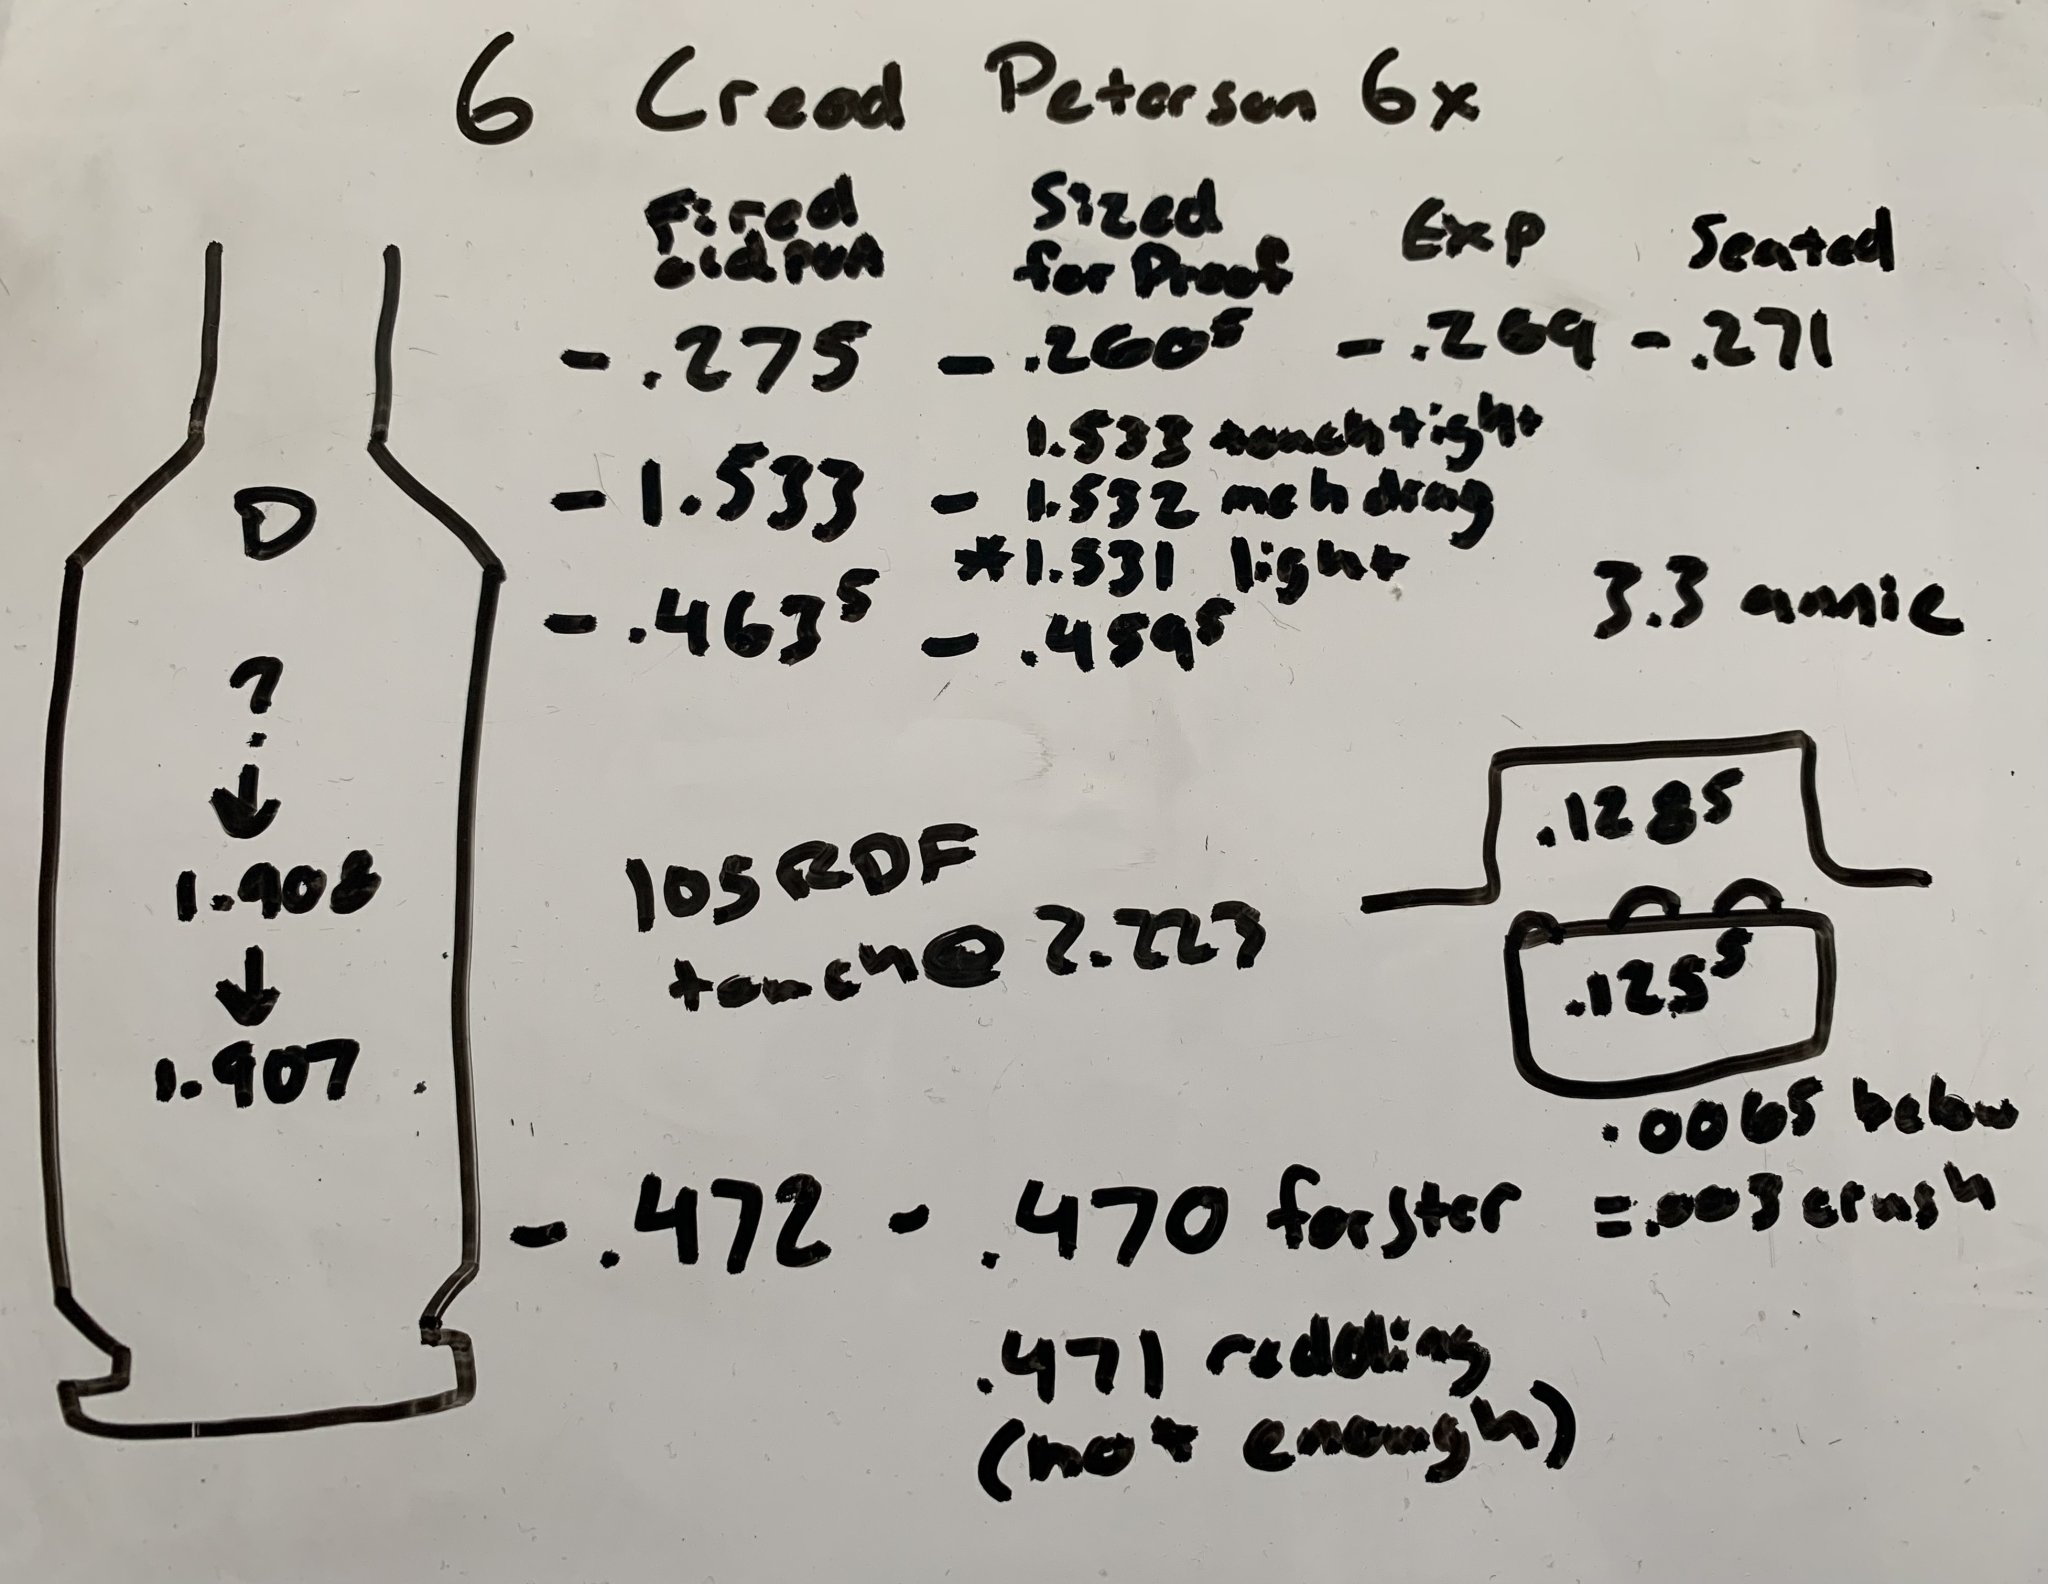 6 Creed Peterson 6x
Fired Sized Exp Seated
old PVA for Proof
- .275 - .260⁵ - .269 - .271
1.533 touch tight
- 1.533 - 1.532 meh drag
*1.531 light
- .463⁵ - .459⁵
3.3 annie
D
?
1.908
1.907
105 RDF
touch @ 2.223
.1285
.125⁵
.0065 below
= .003 crush
- .472 - .470 forster
.471 redding
(not enough)